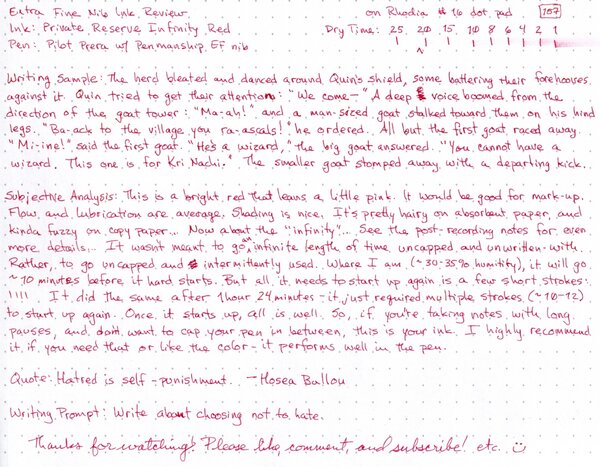 Extra Fine Nib Ink Review on Rhodia #16 dot pad 157
Ink: Private Reserve Infinity Red Dry Time: 25 20 15 10 8 6 4 2 1
Pen: Pilot Prera w/ Penmanship EF nib
Writing Sample: The herd bleated and danced around Quin's shield, some battering their forehooves
against it. Quin tried to get their attention: "We come—" A deep voice boomed from the
direction of the goat tower: "Ma-ah!" and a man-sized goat stalked toward them on his hind
legs. "Ba-ack to the village you ra-ascals!" he ordered. All but the first goat raced away.
"Mi-ine!" said the first goat. "He's a wizard," the big goat answered. "You cannot have a
wizard. This one is for Kri Nachi." The smaller goat stomped away with a departing kick.
Subjective Analysis: This is a bright red that leans a little pink. It would be good for mark-up.
Flow and lubrication are average. Shading is nice. It's pretty hairy on absorbent paper, and
kinda fuzzy on copy paper... Now about the "infinity"... See the post-recording notes for even
more details... It wasn't meant to go an infinite length of time uncapped and unwritten-with.
Rather, to go uncapped and intermittently used. Where I am (~30-35% humitity), it will go
~10 minutes before it hard starts. But all it needs to start up again is a few short strokes:
| | | | . It did the same after 1 hour 24 minutes - it just required multiple strokes (~10-12)
to start up again. Once it starts up, all is well. So, if you're taking notes with long
pauses, and don't want to cap your pen in between, this is your ink. I highly recommend
it if you need that or like the color - it performs well in the pen.
Quote: Hatred is self-punishment. -Hosea Ballou
Writing Prompt: Write about choosing not to hate.
Thanks for watching! Please like, comment, and subscribe! etc. :)